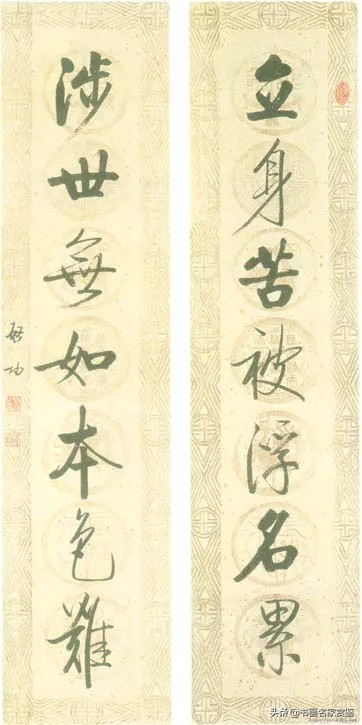 立身苦被浮名累
涉世無如本色難
啟功
头条 @书画名家赏鉴